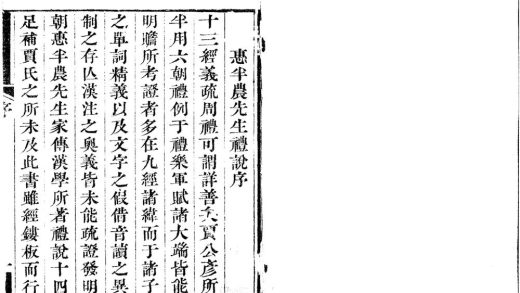 惠半農先生禮說序
十三經義疏周禮可謂詳善矣賈公彥所
半用六朝禮例于禮樂軍賦諸大端皆能
明贍所考證者多在九經諸緯而于諸子
之單詞精義以及文字之假借音讀之異
制之存亾漢注之奧義皆未能疏證發明
朝惠半農先生家傳漢學所著禮說十四
足補賈氏之所未及此書雖經鏤板而行
序
一